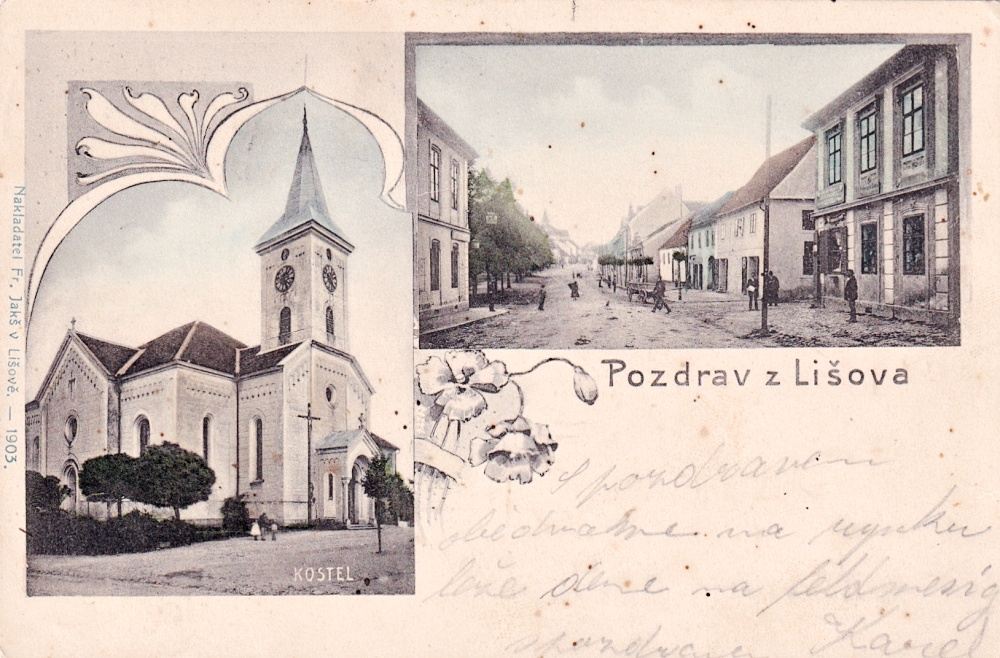 Nakladatel Fr. Jakš v Lišově. — 1903.
KOSTEL
Pozdrav z Lišova
S pozdravem
na rynku
leže dne na
pozdravem Karel